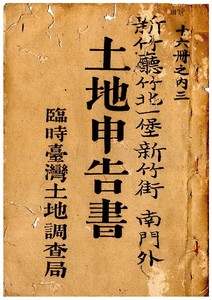 十六冊之內三
新竹廳竹北一堡新竹街 南門外
土地申告書
臨時臺灣土地調查局